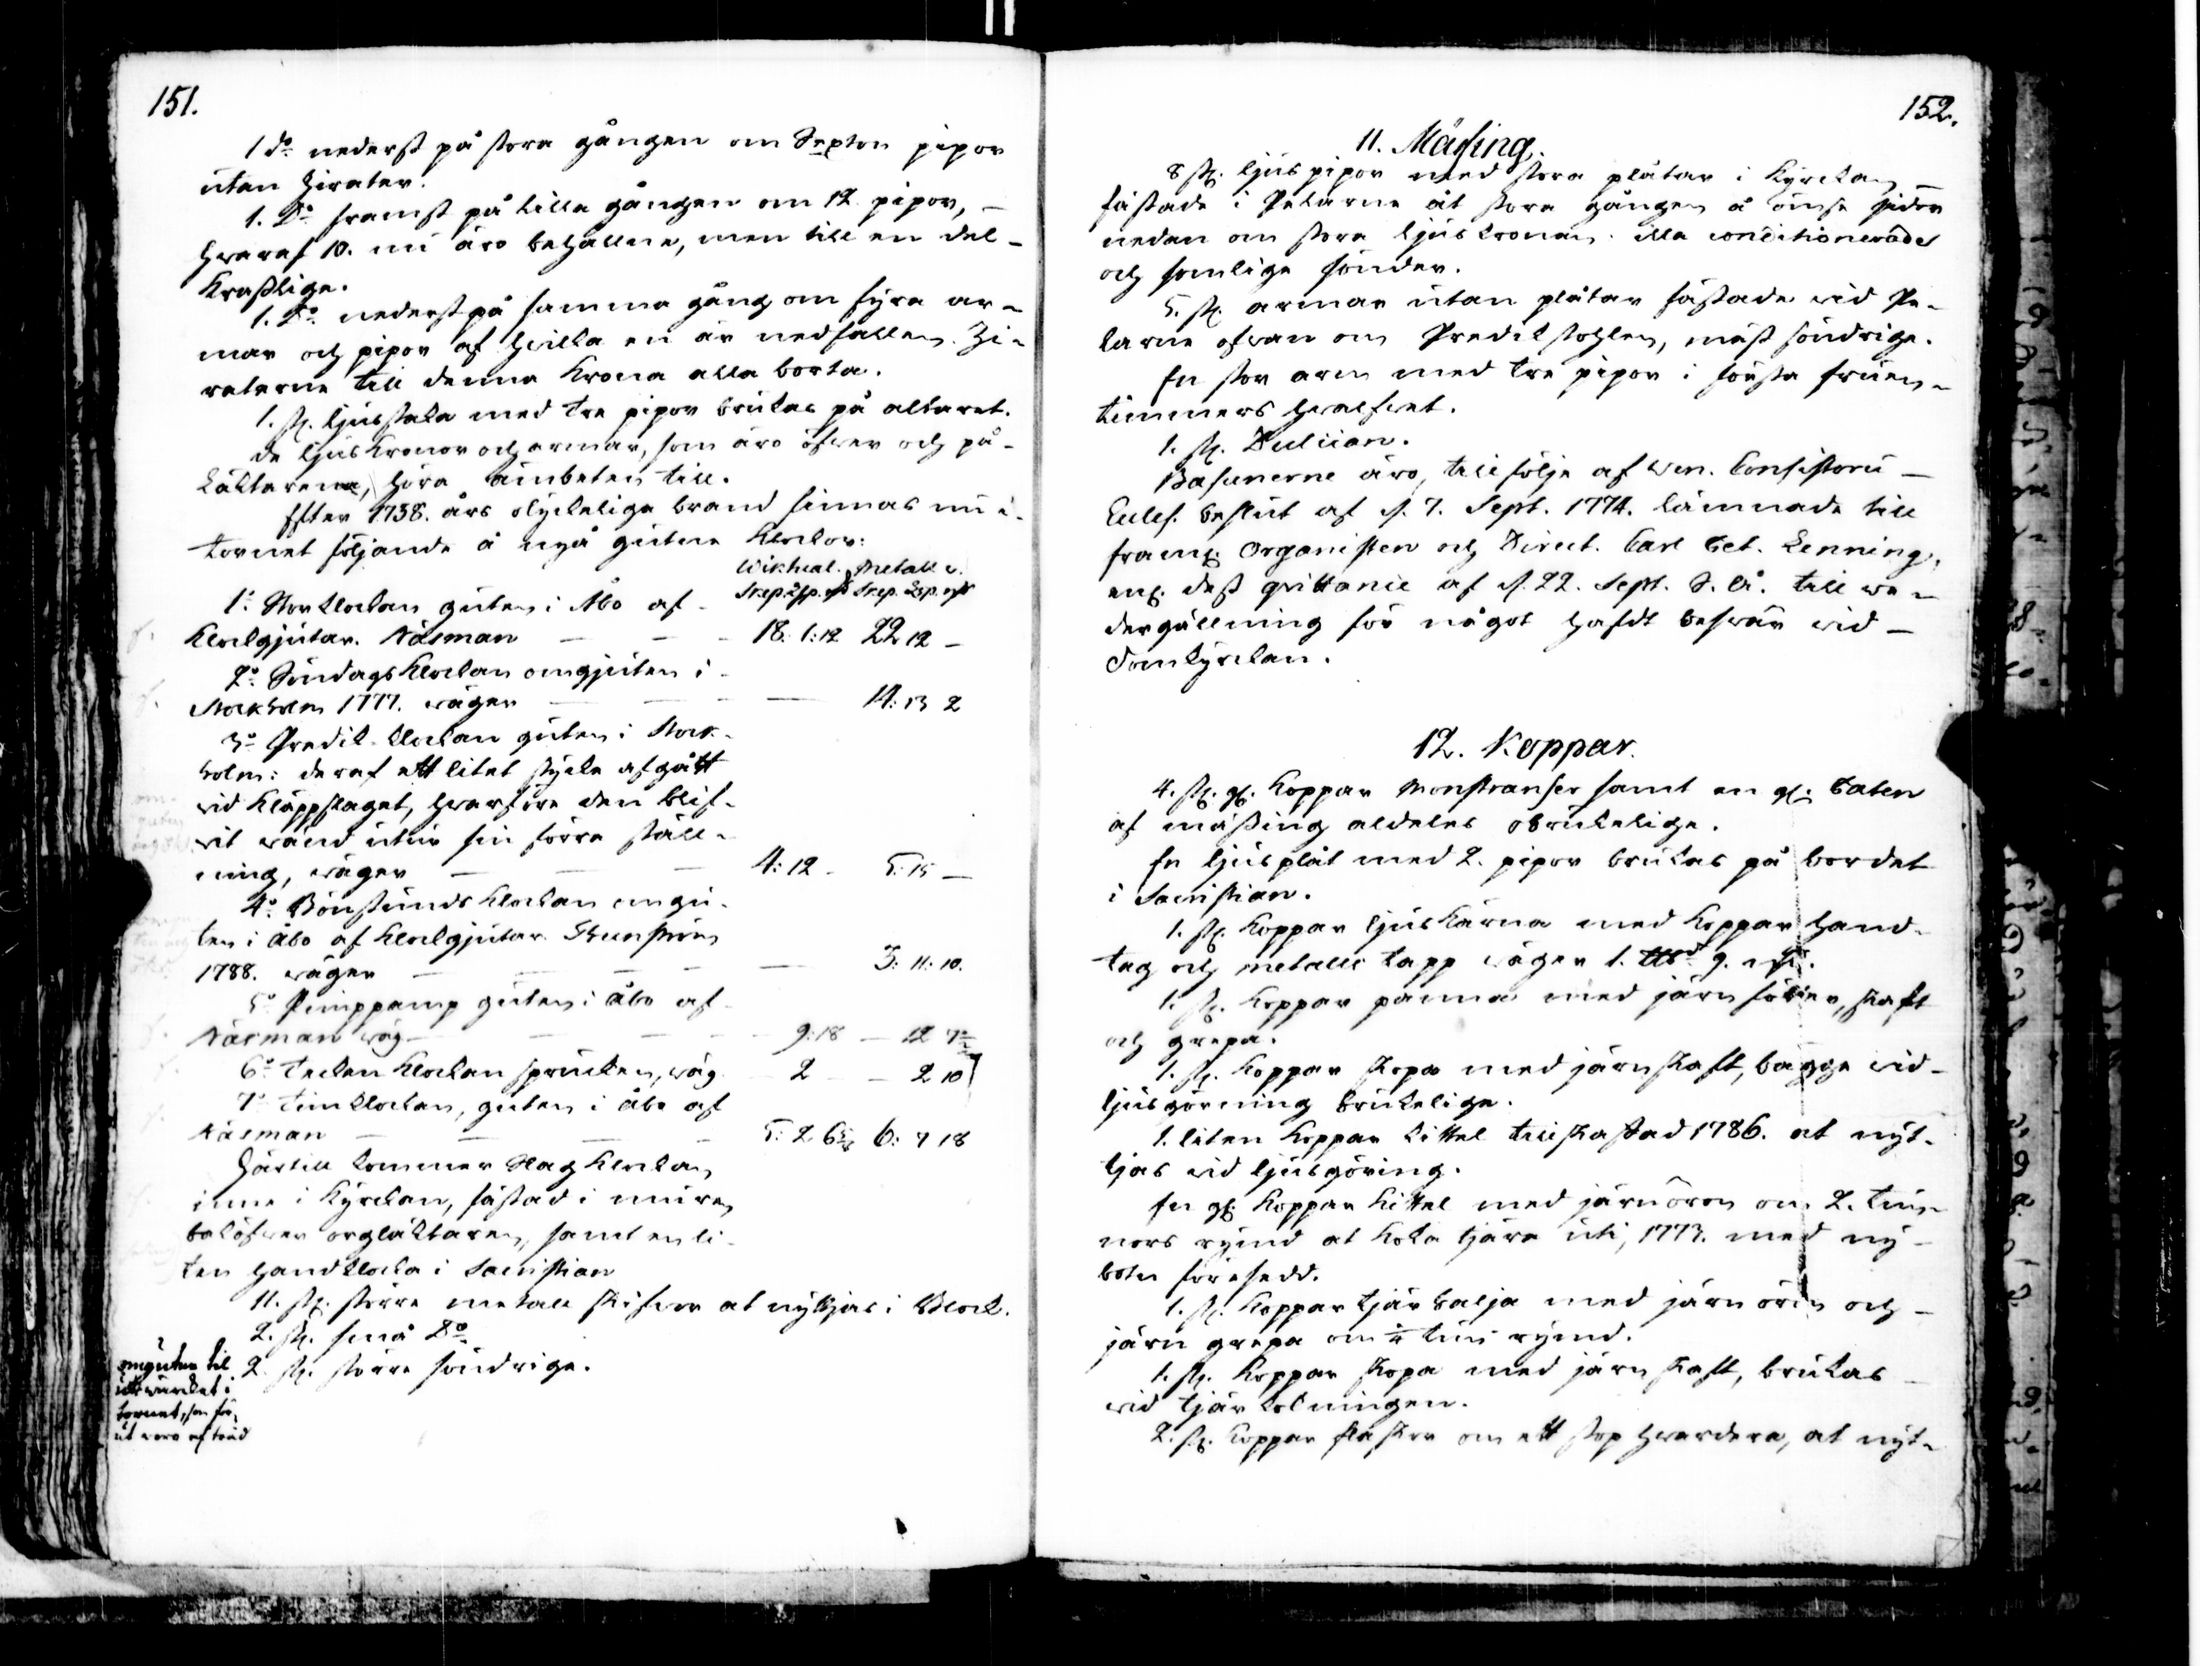 151.
1 do nederst på stora gången om Sexton pipor
utan Zirater.
1. Do framst på lilla gången om 12 pipor, –
hvaraf 10. nu äro behållne, men till en del –
Kraßlige.
1. Do nederst på samma gång om fyra ar-
mar och pipor af hvilka en är nedfallen. Zi-
raterne till denna Krona alla borta.
1. st. ljusstaka med tre pipor brukas på altaret.
de ljus Kronor och armar, som äro öfver och på –
Läktarena, höra ämbeten till.
Efter 1738. års olyckeliga brand finnas nu i
tornet följande å nyå gutne Klockor:
Wiktual. Metall v.
Skep. Lsp. Skep. Lsp.
1o Storklockan guten i Åbo af
Klockgjutar. Näsman – – – 18: 1: 12 22 12 –
2o Söndags Klockan omgjuten i
Stockholm 1777. wäger – – – 14: 13 2
3o Predik-klockan guten i Stock-
holm: deraf ett litet stycke afgått
vid Kläppslaget, hvarföre den blif-
vit wänd utur sin förra ställ-
ning, wäger – – – 4: 12 – 5: 15 –
4o Bönstunds Klockan omgu-
ten i Åbo af Klockgjutar
1788. wäger – – – – 3: 11: 10.
5o Pimppamp guten i Åbo af
Näsman wäg – – – 9: 18 – 12
6o Tecken Klockan sprucken, wäg 2 – – 2 10
7o Timklockan, guten i Åbo af
Näsman – – – 5: 2 6 6: 7 18
Härtill kommer Slag Klockan
inne i Kyrckan, fästad i muren
baköfver orgläktaren, samt en li-
ten handklocka i Sacristian
11. st. större metall skifvor at nyttjas i Block.
2. st. små Do
2. st. större söndrige.
omgutne til
uhrwerket i
tornet, som för-
ut voro af träd
152.
11. Mäßing.
8 st. ljus pipor med stora plåtar i Kyrckan –
fästade i Pelarne åt stora gången å ömse sidor
nedan om stora ljuskronan. illa conditionerade
och somlige sönder.
5. st. armar utan plåtar fästade vid Pe-
larne ofvan om Predikstohlen, mäst söndrige.
En stor arm med tre pipor i första fruen-
timmers hvalfvet.
1. st. Dulcian.
Basunerne äro, till följe af Ven. Consistorii –
Eccles. beslut af d. 7. Sept. 1774. lämnade till
framl. Organisten och Direct. Carl Pet. Lenning,
enl. deß qvittance af d. 22. Sept. S. Å. till we-
dergällning för något hafdt beswär vid –
Domkyrckan.
12. Koppar.
4. st. gl. Koppar Monstranser samt en gl. Paten
af mäßing aldeles obrukelige.
En ljusplåt med 2. pipor brukas på bordet
i Sacristian.
1. st. Koppar ljuskärna med Koppar hand-
tag och metall tapp wäger 1. 9.
1. st. Koppar panna med järn fötter, skaft
och grepa.
1. st. Koppar skopa med järnskaft, bägge vid –
ljusgörning brukelige.
1. liten Koppar kittel till skaffad 1786. at nyt-
tjas vid ljusgöring.
En gl. Koppar Kittel med järnöron om 2. tun-
nors rymd at koka tjära uti, 1773. med ny –
botn försedd.
1. st. Koppar tjär balja med järn öron och –
järn grepa om tuns rymd.
1. st. Koppar skopa med järn skaft, brukas –
vid tjär kokningen.
2. st. Koppar flaskor om ett stop hvardera, at nyt-